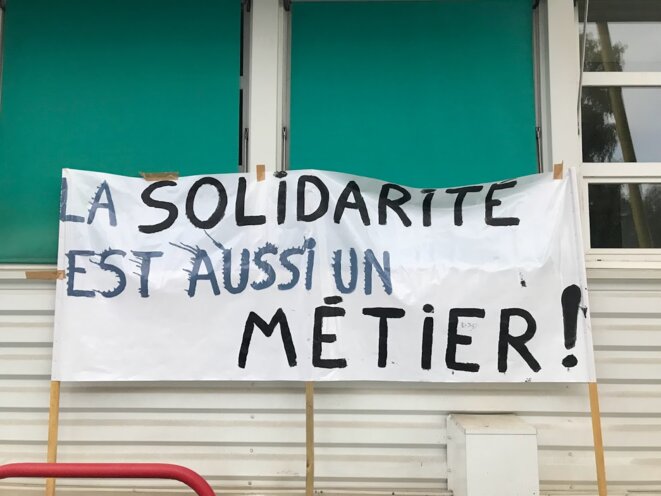 LA SOLIDARITÉ
EST AUSSI UN
MÉTIER !